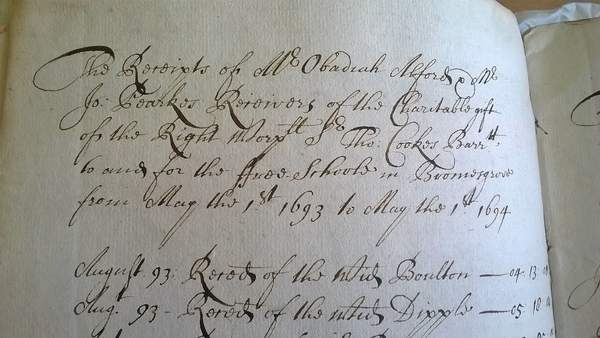 The Receipts of Mr. Obadiah Alford & Mr.
Jo: Pearkes Receivers of the Charitable gift
of the Right Worpll Sr. Tho: Cookes Barrtt.
to and for the ffree Schoole in Bromesgrove
from May the 1st 1693 to May the 1st 1694
August 93. Reced of the Wid Boulton — 04. 13.
Augt 93 - Reced of the Wid Dipple — 05. 10